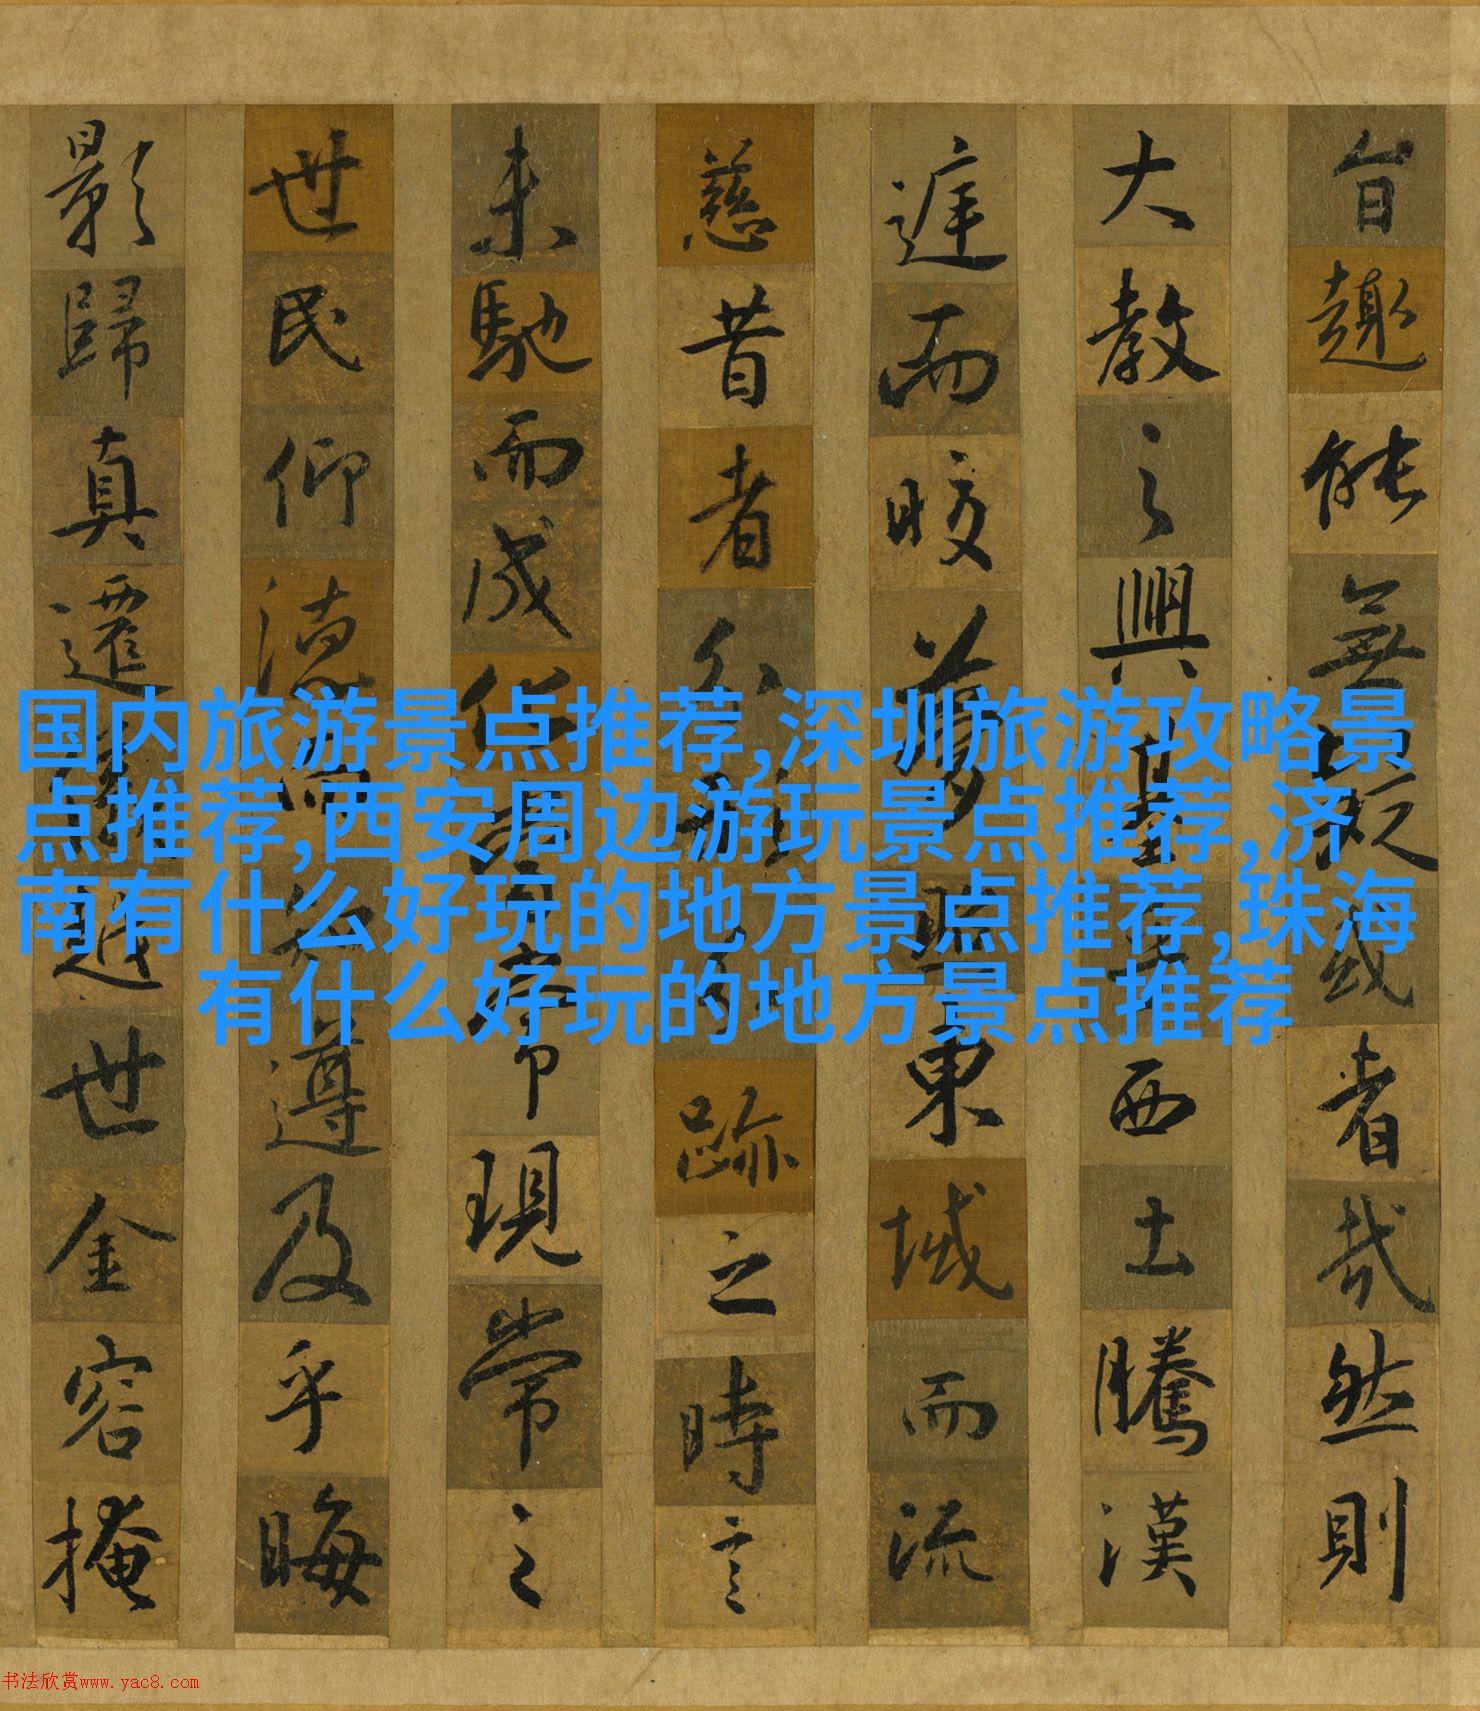 国内旅游景点推荐,深圳旅游攻略景
点推荐,西安周边游玩景点推荐,济
南有什么好玩的地方景点推荐,珠海
有什么好玩的地方景点推荐
旨趣能無疑惑者哉然則
大教之興基乎西土騰漢
庭而皎夢照東域而流
慈昔者分形分跡之時言
未馳而成化當常現常之
世民仰德而知遵及乎晦
影歸真遷儀越世金容掩
书法欣赏www.yac8.com